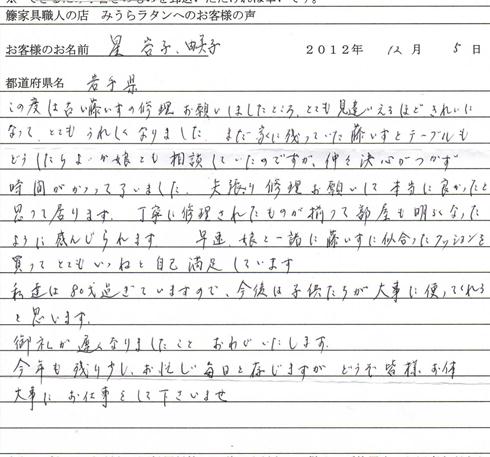 籐家具職人の店　みうらラタンへのお客様の声
お客様のお名前　星 岩子、由美子　２０１２年　12月　5日
都道府県名　岩手県
この度は古い藤いすの修理お願いしましたところ、とても見違いえるほどきれいに
なって、とてもうれしくなりました まだ家に残っていた藤いすとテーブルも
どうしたらよいか娘とも相談していたのですが、仲々決心がつかず
時間がかかって了いました、夫張り修理お願いして本当に良かったと
思って居ります。 丁寧に修理されたものが揃って部屋も明るくなった
ように感んじられます 早速、娘と一諸に藤いすに似合ったクッションを
買ってとてもいゝねと自己満足しています
私達は80才過ぎていますので、今後は子供たちが大事に使ってくれると
と思います.
御礼が遅くなりましたこと おわびいたします.
今年も残り少し、お忙しい毎日と存じますが どうぞ皆様、お体
大事に お仕事をして下さいませ